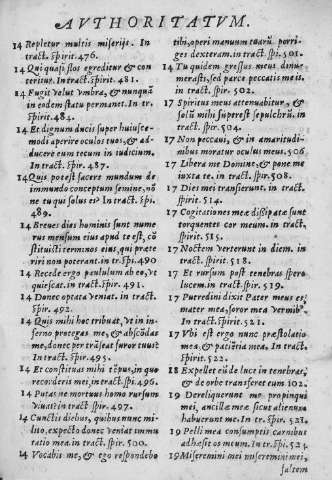 AVTHORITATVM.
14 Repletur multis miserijs. In
tract. Spirit. 476.
14 Qui quasi flos egreditur & con
teritur. In tract. Spirit. 481.
14 Fugit velut vmbra, & nunquã
in eodem statu permanet. In tr.
Spirit. 484.
14 Et dignum ducis super huiusce-
modi aperire oculos tuos, & ad-
ducere eum tecum in iudicium.
In tract. Spir. 487.
14 Quis potest facere mundum de
immundo conceptum semine, nõ
ne tu qui solus es? In tract. Spi.
489.
14 Breues dies hominis sunt nume
rus mensium eius apud te est, cõ
stituisti terminos eius, qui præte
riri non poterunt. in tr. Spi. 490
14 Recede ergo paululum ab eo, vt
quiescat. in tract. Spir. 491.
14 Donec optata veniat. in tract.
Spir. 492.
14 Quis mihi hoc tribuat, vt in in-
ferno protegas me, & abscõdas
me, donec pertrãseat furor tuus?
In tract. Spir. 495.
14 Et constituas mihi tẽpus, in quo
recorderis mei, in tract. spi. 496.
14 Putas ne mortuus homo rursum
viuat? in tract. spir. 497.
14 Cunctis diebus, quibus nunc mi-
lito, expecto donec veniat immu
tatio mea. in tract. spir. 500.
14 Vocabis me, & ego respondebo
tibi, operi manuum tuarũ porri-
ges dexteram. in tract. spi. 501.
14 Tu quidem gressus meos dinu-
merasti, sed parce peccatis meis.
in tr. spir. 502.
17 Spiritus meus attenuabitur, &
solũ mihi superest sepulchrũ. in
tract. spir. 504.
17 Non peccaui, & in amaritudi-
nibus moratur oculus meus. 506.
17 Libera me Domine, & pone me
iuxta te. in tract. spir. 508.
17 Dies mei transierunt. in tract.
spirit. 514.
17 Cogitationes meæ dißipatæ sunt
torquentes cor meum. in tract.
spirit. 515.
17 Noctem verterunt in diem. in
tract. spirit. 518.
17 Et rursum post tenebras spero
lucem. in tract. spir. 519.
17 Putredini dixit Pater meus es,
mater mea, soror mea vermibº.
In tract. spirit. 521.
17 Vbi est ergo nunc præstolatio
mea & patiẽtia mea. In tract.
Spirit. 522.
18 Expellet eũ de luce in tenebras,
& de orbe transferet eum 102.
19 Dereliquerunt me propinqui
mei, ancillæ meæ sicut alienum
habuerunt me. In tr. Spir. 523.
19 Pelli meæ consumptis carnibus
adhæsit os meum. In tr. Spi. 524.
19 Miseremini mei miseremini mei,
saltem